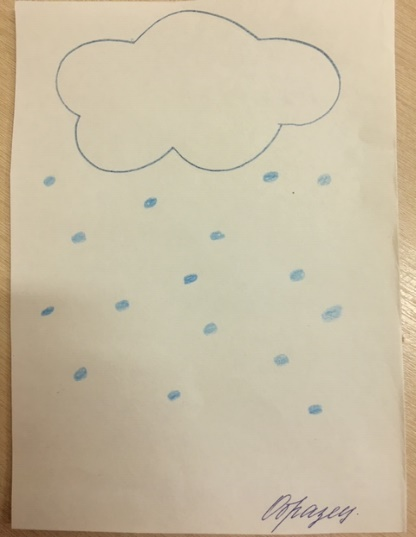 Образец.